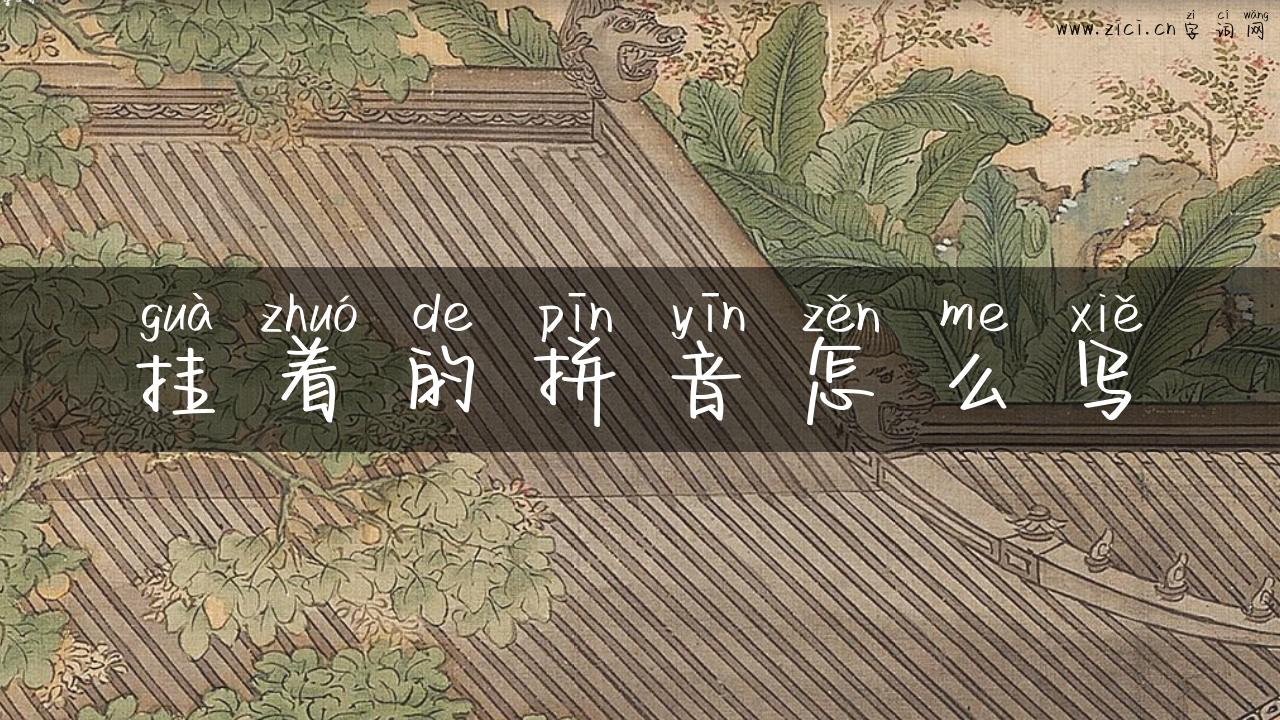 zì cí wǎng
www.zici.cn 字词网
guà zhuó de pīn yīn zěn me xiě
挂着的拼音怎么写